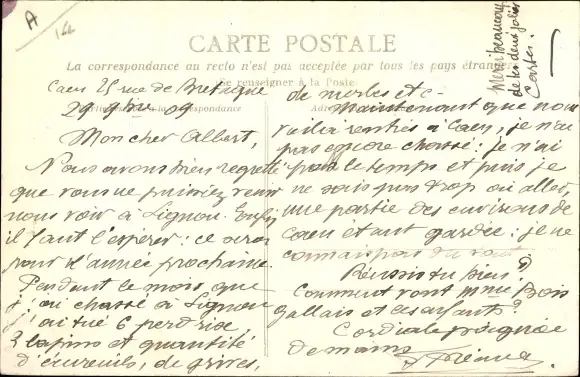 A
14
CARTE POSTALE
La correspondance au recto n'est pas acceptée par tous les pays étrangers
(Se renseigner à la Poste)
Merci beaucoup
de tes deux jolies
Cartes.
Caen 25 rue de Bretagne
29 9bre 09
Mon cher Albert,
Nous avons bien regretté
que vous ne puissiez venir
nous voir à Lignou. Enfin
il faut l'espérer: ce sera
pour l'année prochaine.
Pendant le mois que
j'ai chassé à Lignou
j'ai tué 6 perdrix,
3 lapins et quantité
d'écureuils, de grives,
de merles etc-
Maintenant que nous
voilà rentrés à Caen, je n'ai
pas encore chassé: je n'ai
pas le temps et puis je
ne sais pas trop où aller,
une partie des environs de
Caen étant gardée: je ne
connais pas du tout
Réussis tu bien?
Comment vont Mme Bois
gallais et ses enfants?
Cordiale poignée
de mains